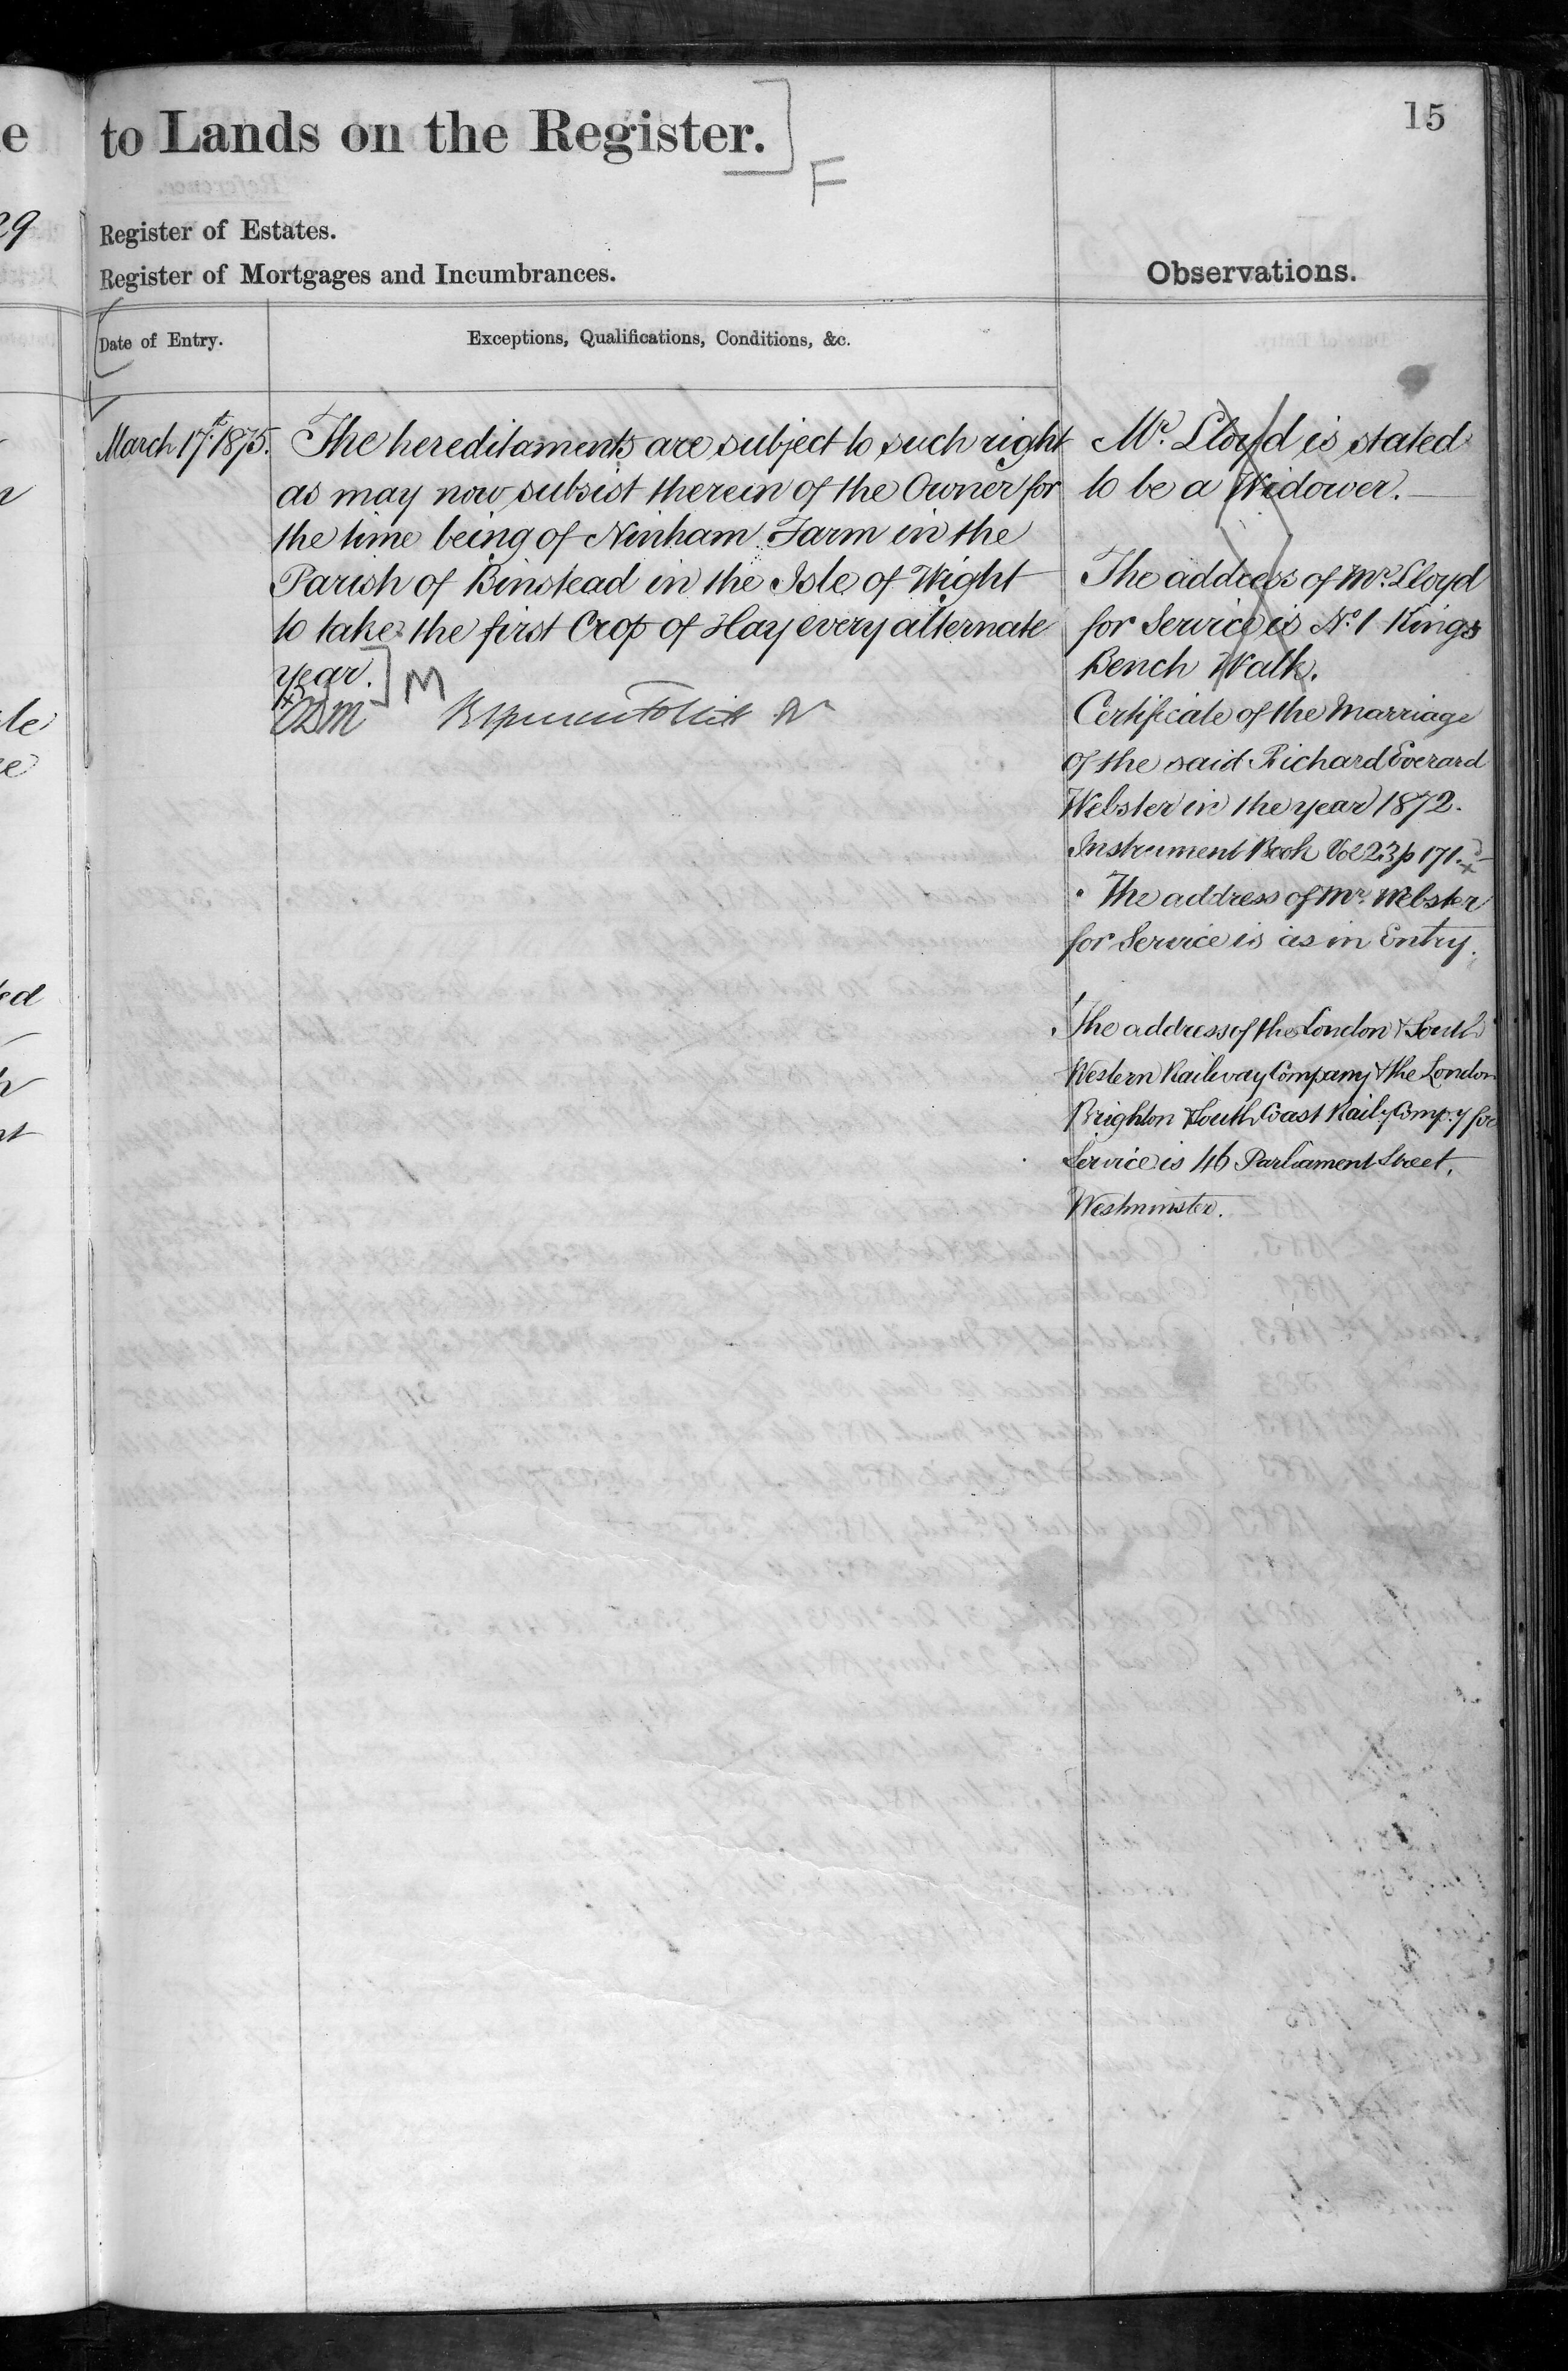 to Lands on the Register.
F
15
Register of Estates.
Register of Mortgages and Incumbrances.
Observations.
Date of Entry.
Exceptions, Qualifications, Conditions, &c.
March 17t. 1875.
The hereditaments are subject to such right
as may now subsist therein of the Owner for
the time being of Ninham Farm in the
Parish of Binstead in the Isle of Wight
to take the first Crop of Hay every alternate
year.
M
Mr. Lloyd is stated
to be a Widower.
The address of Mr. Lloyd
for Service is No. 1 Kings
Bench Walk.
Certificate of the Marriage
of the said Richard Everard
Webster in the year 1872.
Instrument Book Vol 23 p 171.
The address of Mr. Webster
for Service is as in Entry.
The address of the London & South
Western Railway Company & the London
Brighton & South Coast Rail.y Comp.y for
Service is 46 Parliament Street,
Westminster.